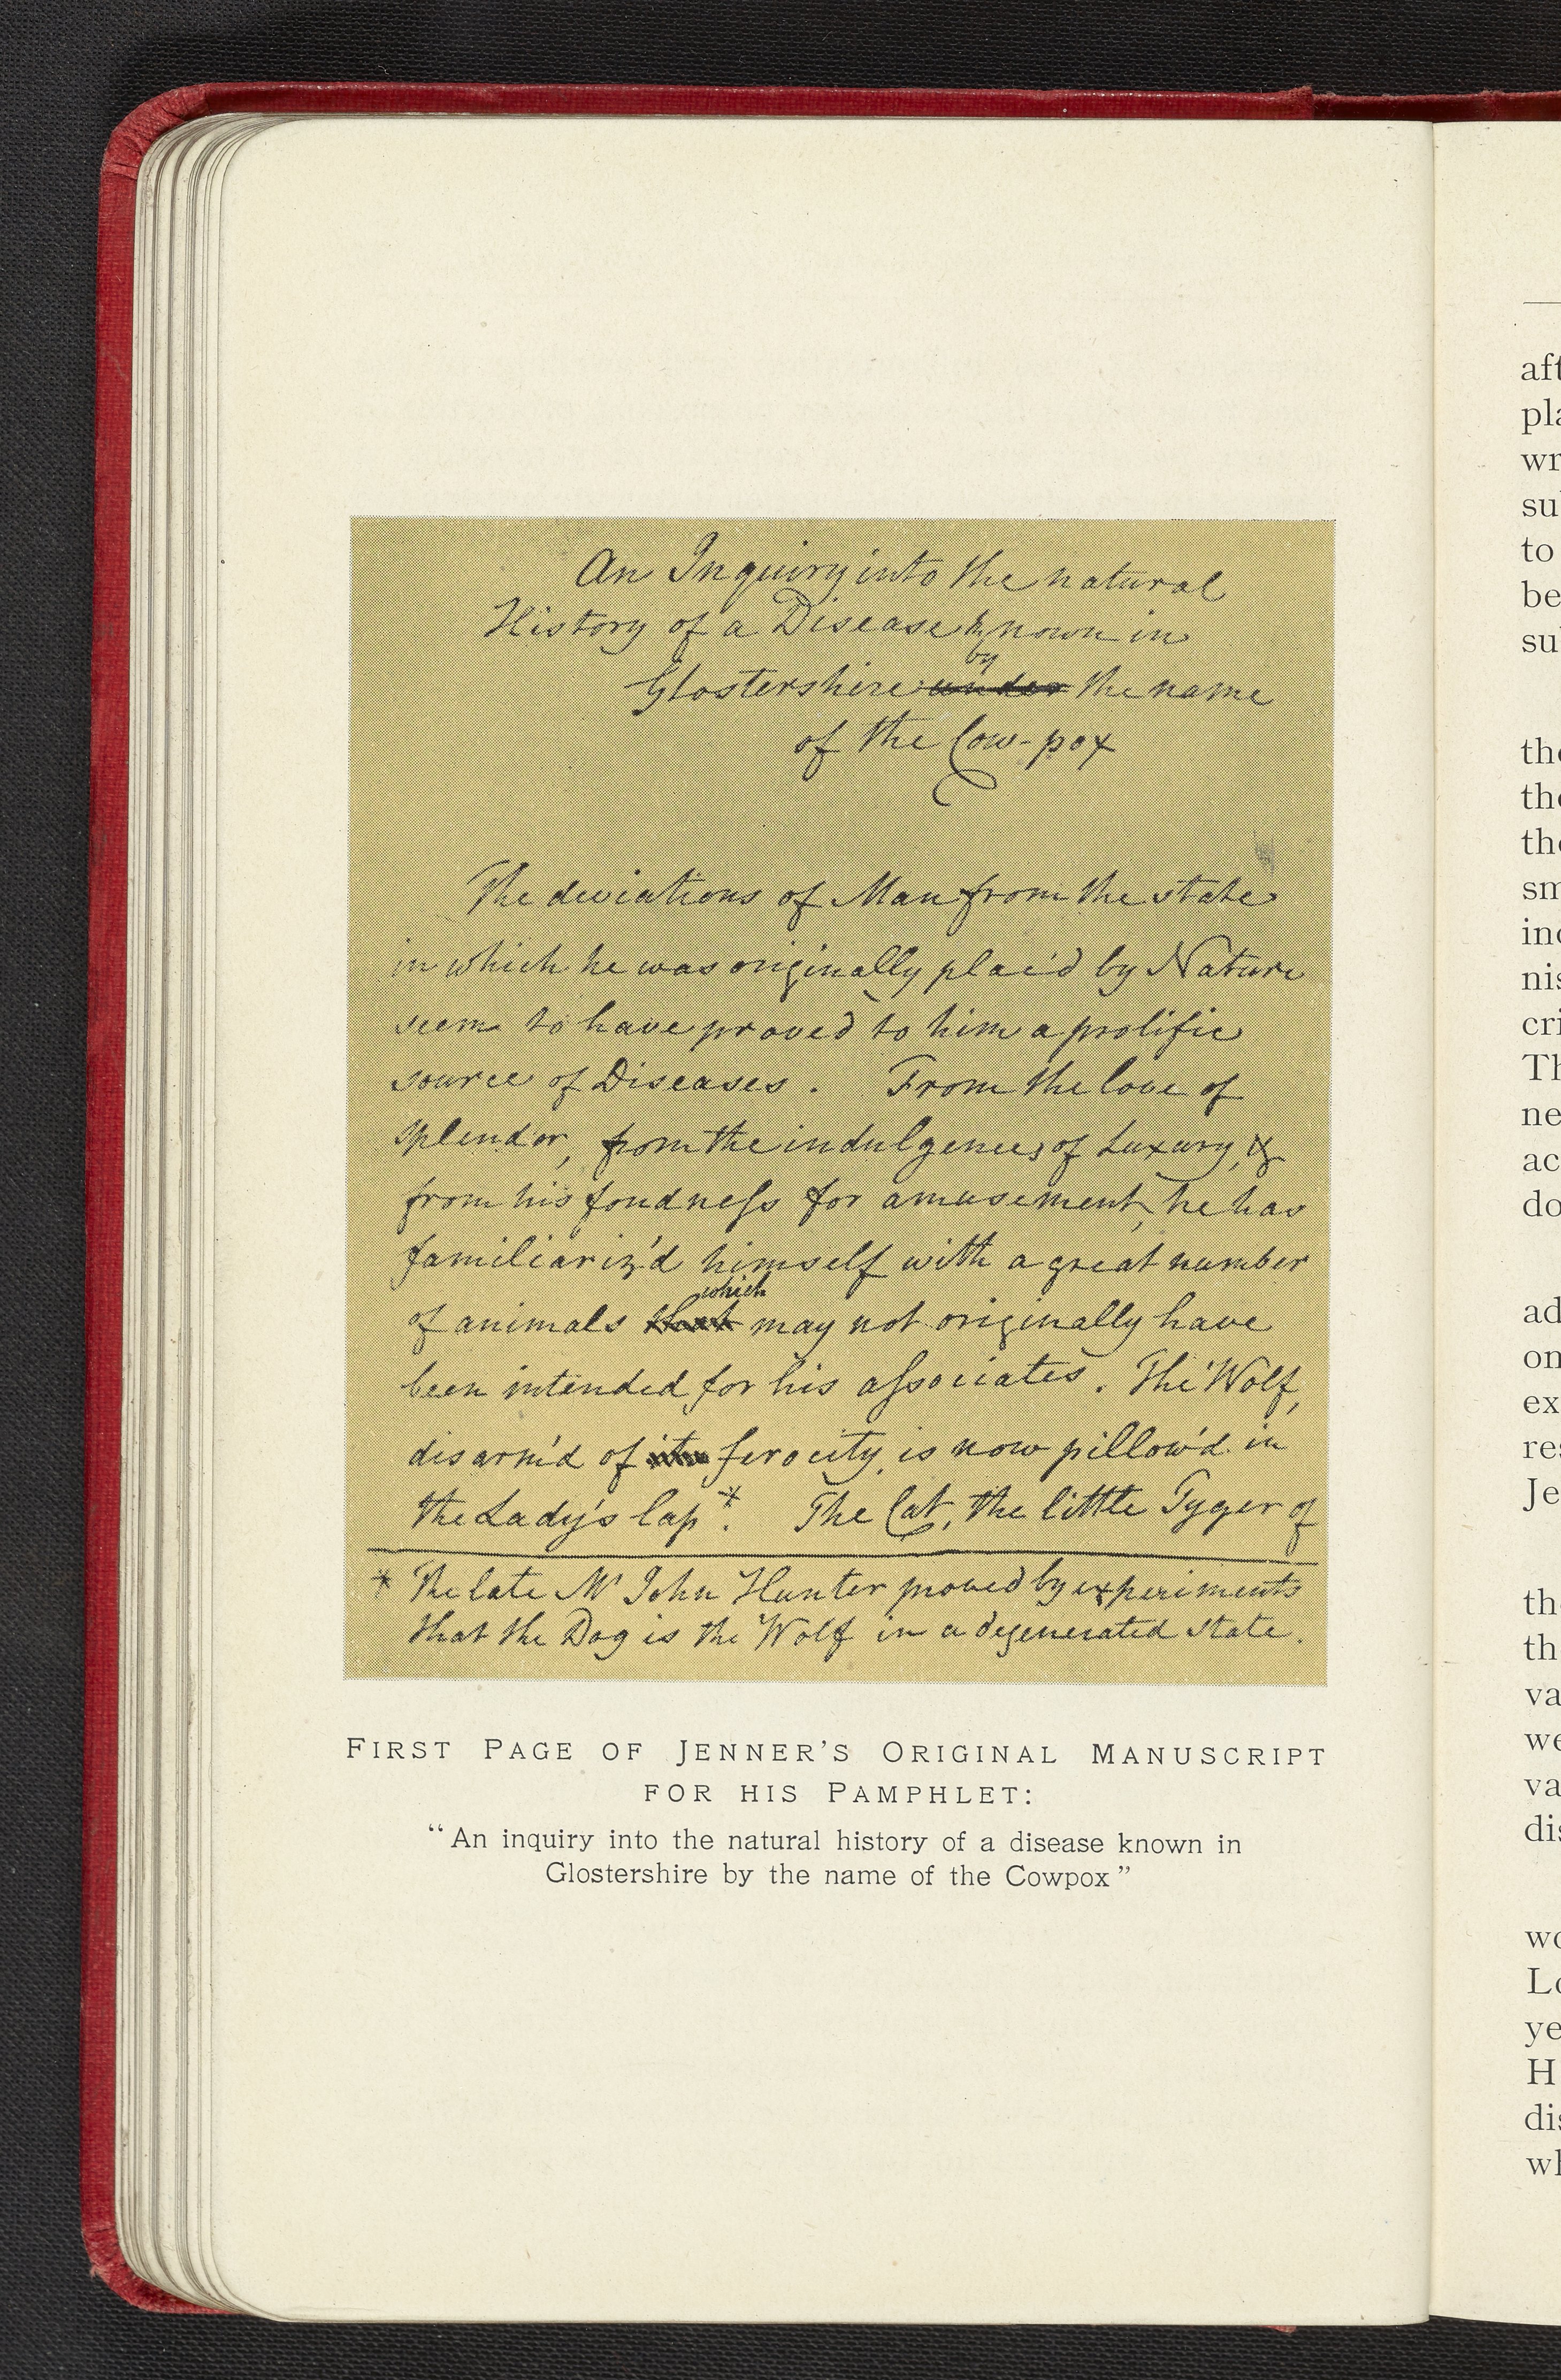 An Inquiry into the natural
History of a Disease known in
by
Glostershire under the name
of the Cow-pox
The deviations of Man from the state
in which he was originally plac'd by Nature
seem to have proved to him a prolific
source of Diseases. From the love of
splendor, from the indulgences of Luxury, &
from his fondneſs for amusement, he has
familiariz'd himself with a great number
which
of animals that may not originally have
been intended for his aſsociates. The Wolf,
disarm'd of its ferocity, is now pillow'd in
the Lady's lap*. The Cat, the little Tyger of
* The late Mr John Hunter proved by experiments
that the Dog is the Wolf in a degenerated state.
FIRST PAGE OF JENNER'S ORIGINAL MANUSCRIPT
FOR HIS PAMPHLET:
“An inquiry into the natural history of a disease known in
Glostershire by the name of the Cowpox”
aft
pla
wr
su
to
be
su
the
the
the
sm
inc
nis
cri
Th
ne
ac
do
ad
on
ex
res
Je
th
th
va
we
va
dis
wo
Lo
ye
H
dis
wh